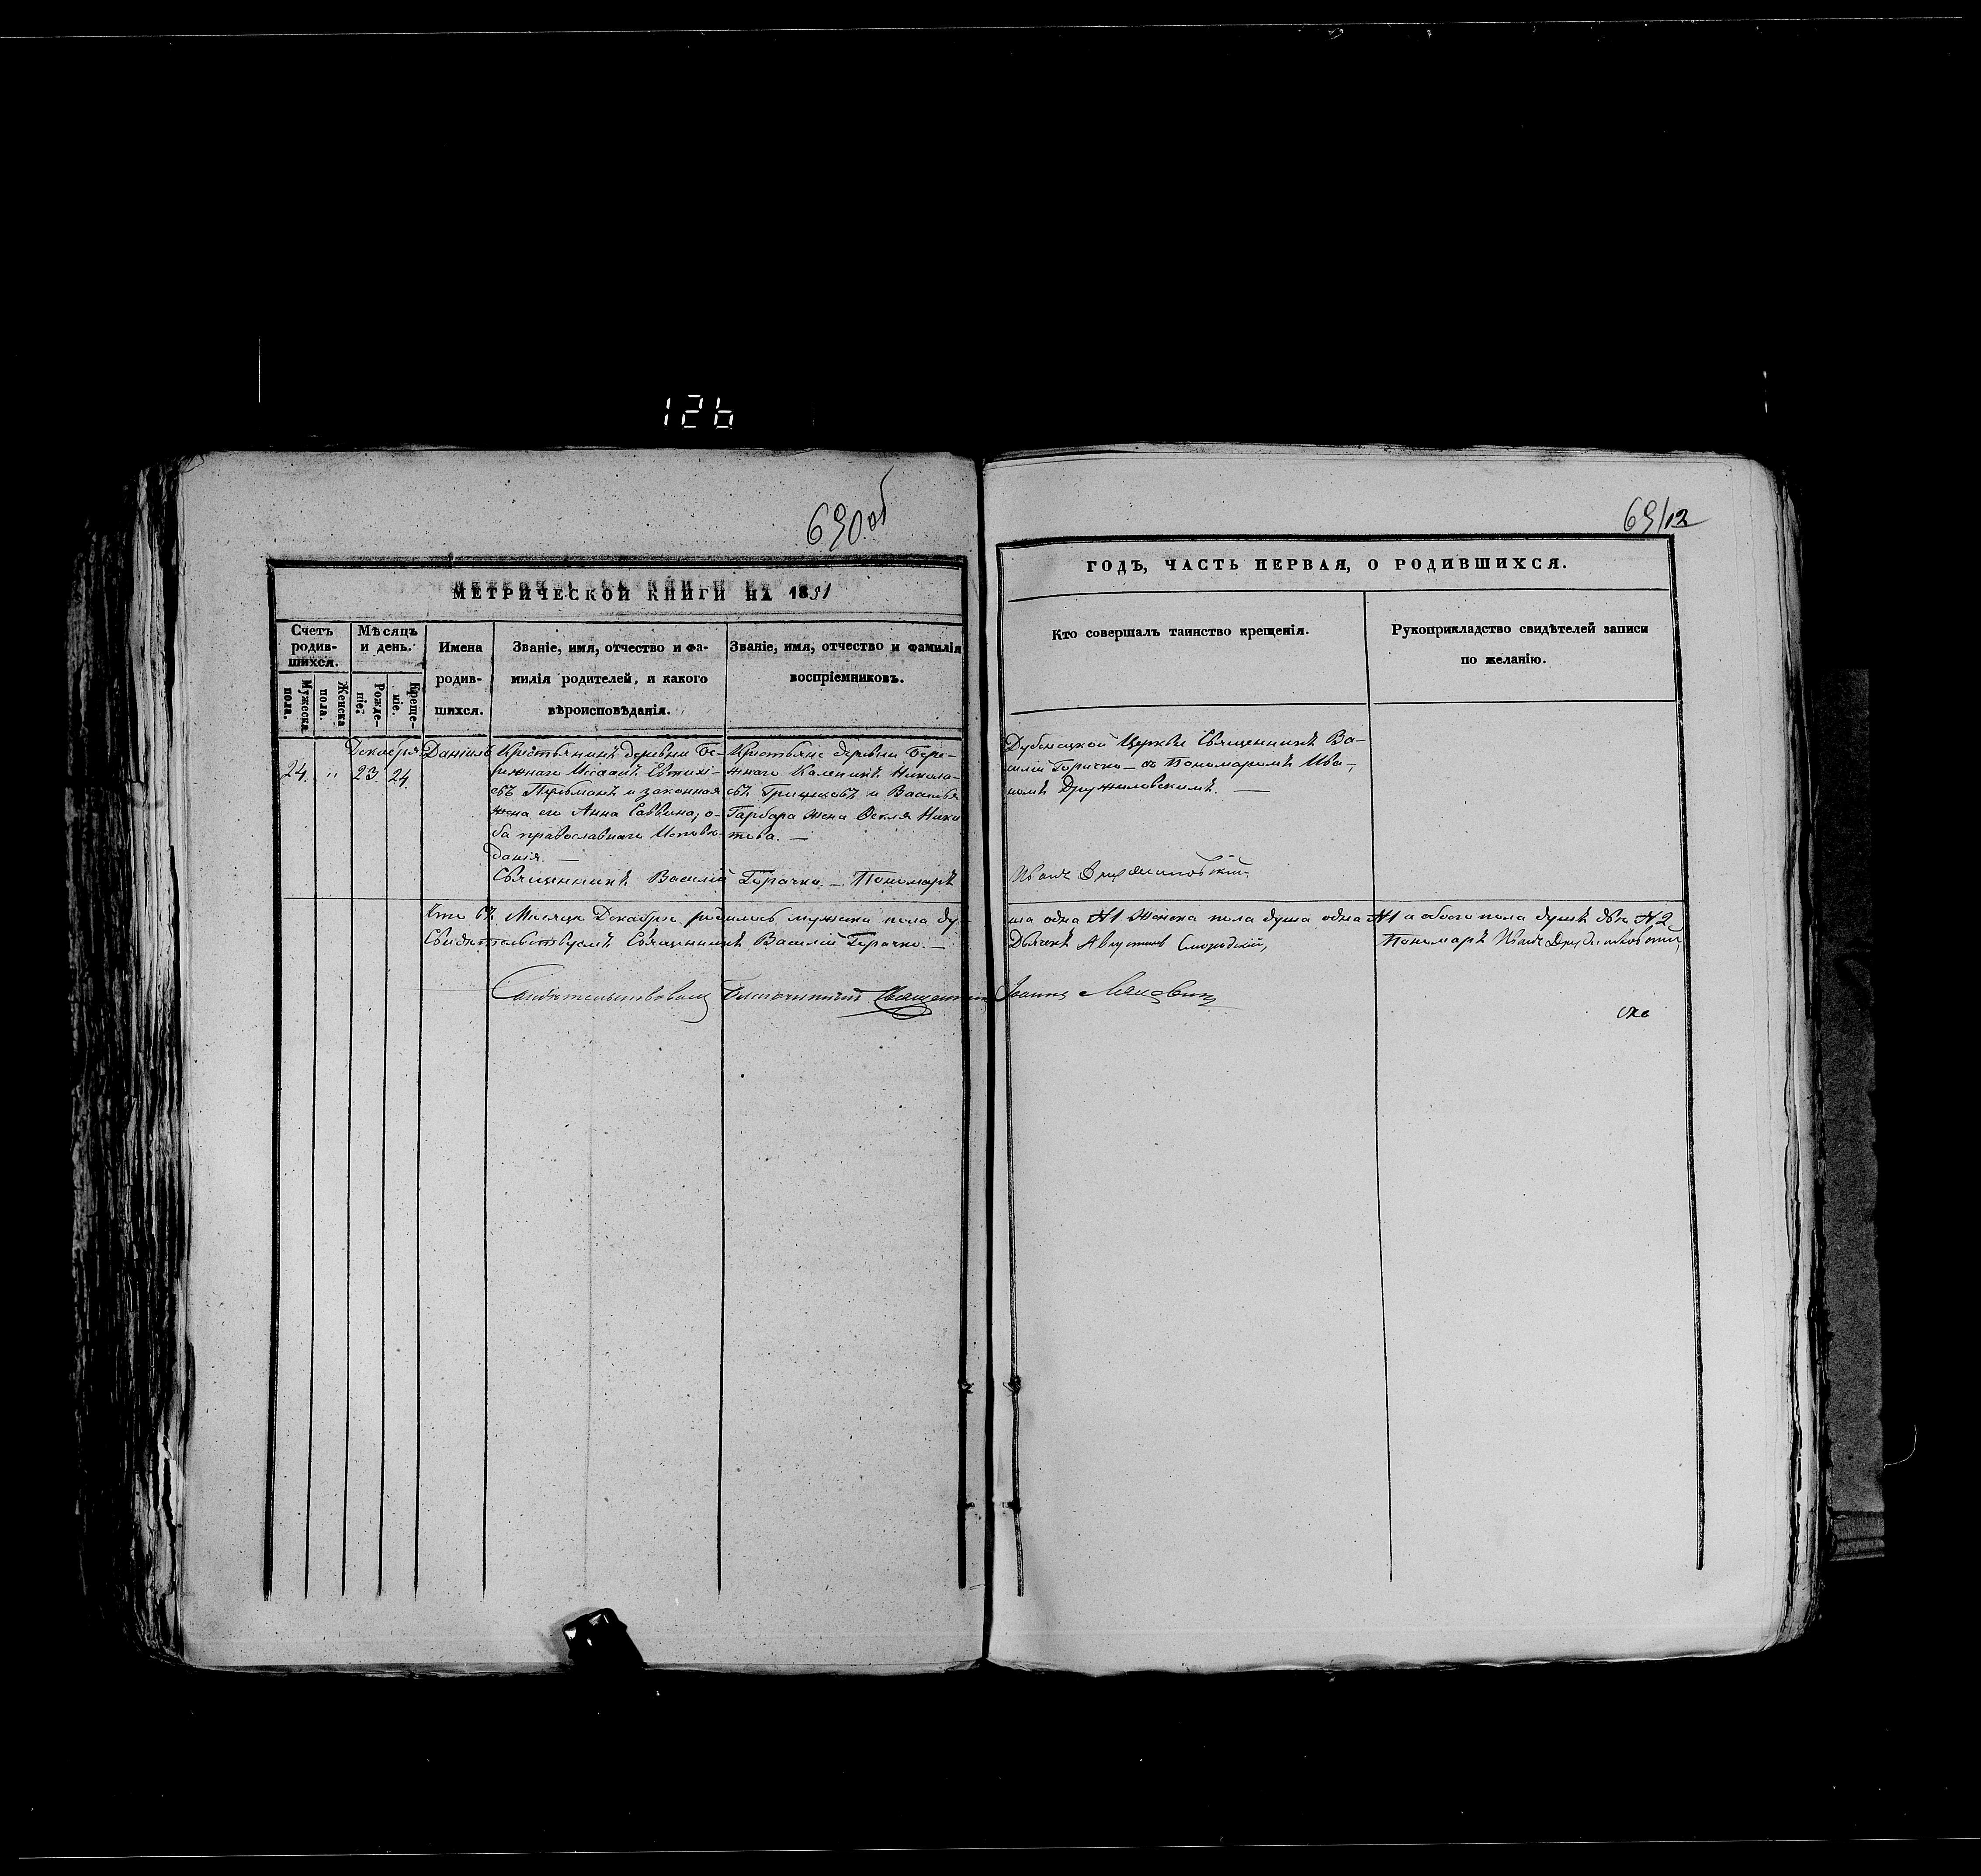 126
690 об
МЕТРИЧЕСКОЙ КНИГИ НА 1851
Счетъ родив-шихся.
Мужеска пола.
Женска пола.
Мѣсяцъ и день.
Рожде-ніе.
Креще-ніе.
Имена родив-шихся.
Званіе, имя, отчество и фа-
милія родителей, и какого
вѣроисповѣданія.
Званіе, имя, отчество и фамилія
воспріемниковъ.
Декабря
24. " 23. 24.
Даніилъ
Крестьянинъ деревни Бе-
режнаго Исаакъ
и законная
жена его Анна Саввина, о-
ба православнаго Исповѣ-
данія. —
Крестьяне деревни Бере-
жнаго Калиникъ Никола-
евъ Гришковъ и Василья
Гарбара жена Фекла Ники
това. —
Священникъ Василій Горачко. — Пономарь
Что въ Мѣсяце Декабре родилось мужеска пола ду-
Свидѣтельствуемъ Священникъ Василій Горачко. —
Свидѣтельствовалъ Благочинный Священникъ
69/12
ГОДЪ, ЧАСТЬ ПЕРВАЯ, О РОДИВШИХСЯ.
Кто совершалъ таинство крещенія.
Рукоприкладство свидѣтелей записи
по желанію.
Церкви Священникъ Ва-
силій Горачко — съ Пономаремъ Ива-
номъ Дружиловскимъ. —
Иванъ Дружиловскій.
ша одна №1 Женска пола душа одна №1 а обоего пола душъ двѣ №2
Дьячекъ Августинъ
Пономарь Иванъ Дружиловскій
Іоаннъ